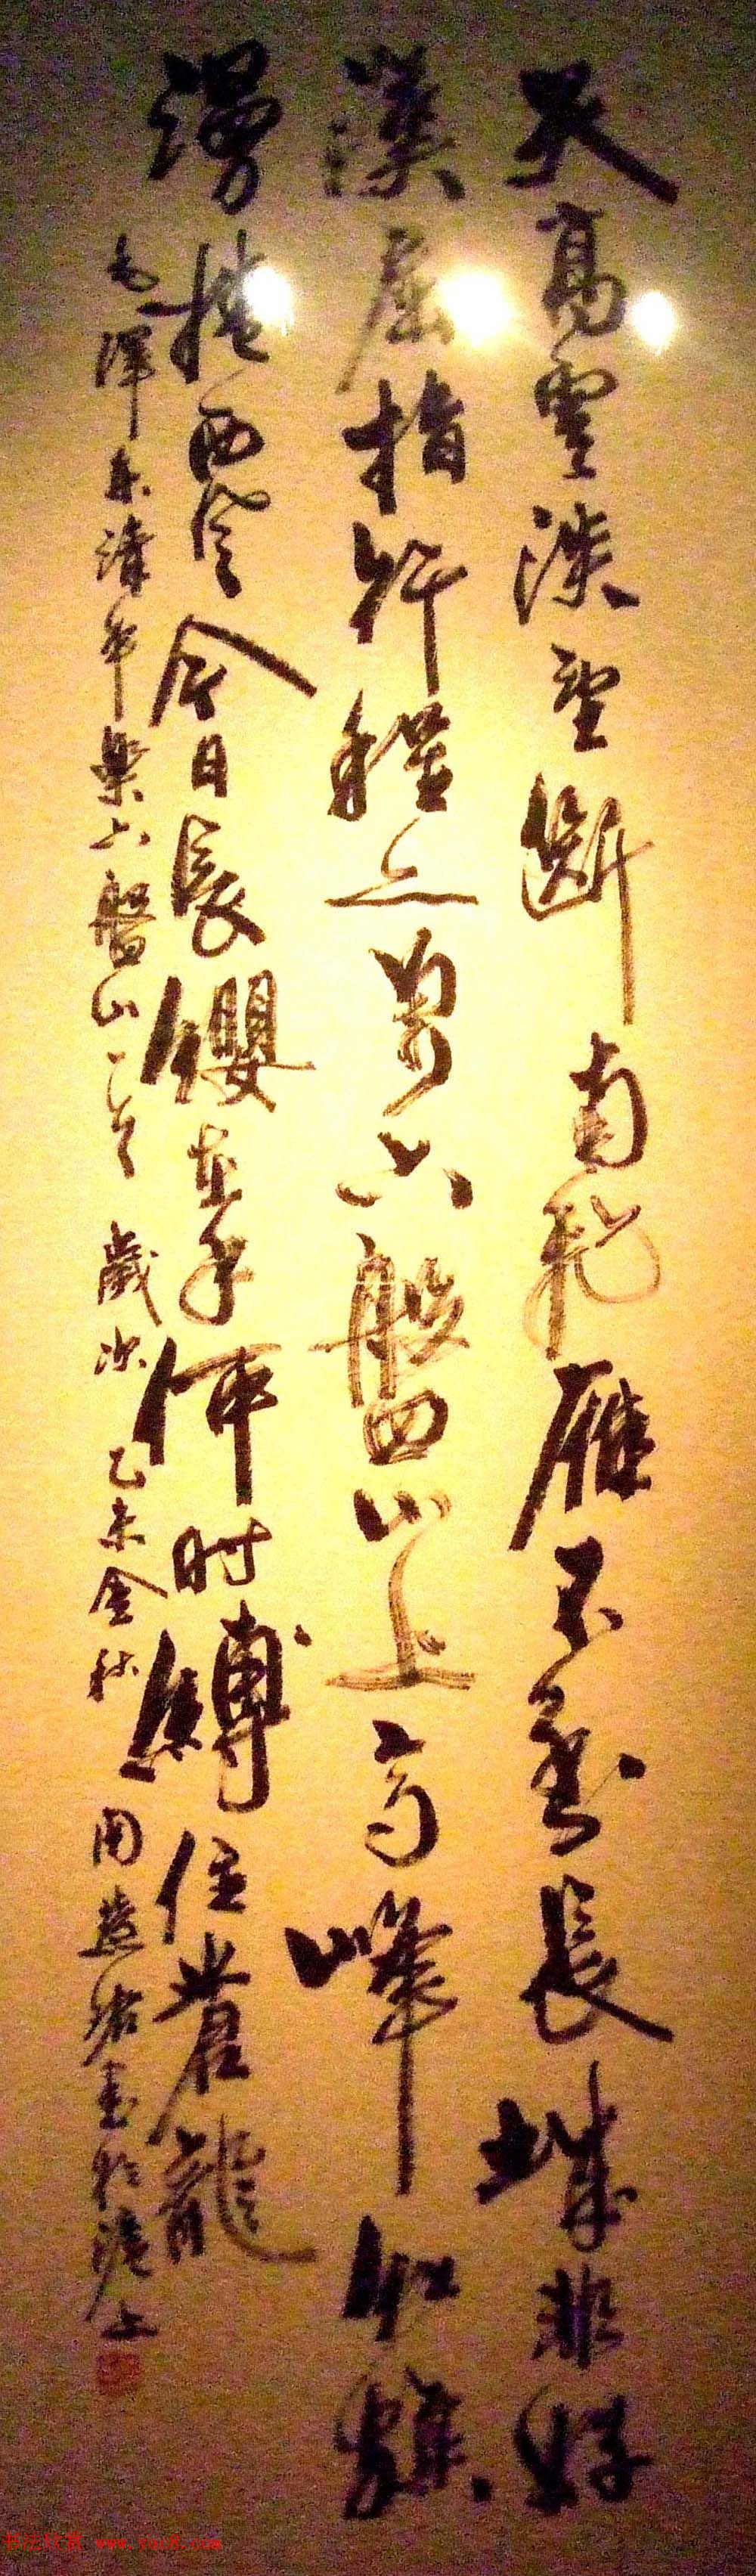 天高雲淡望斷南飛雁不到長城非好
漢屈指行程二萬六盤山上高峰紅旗
漫捲西風今日長纓在手何时縛住蒼龍
毛澤東清平樂六盤山一首 歲次乙未金秋 周書於滬上
书法欣赏 www.yac8.com